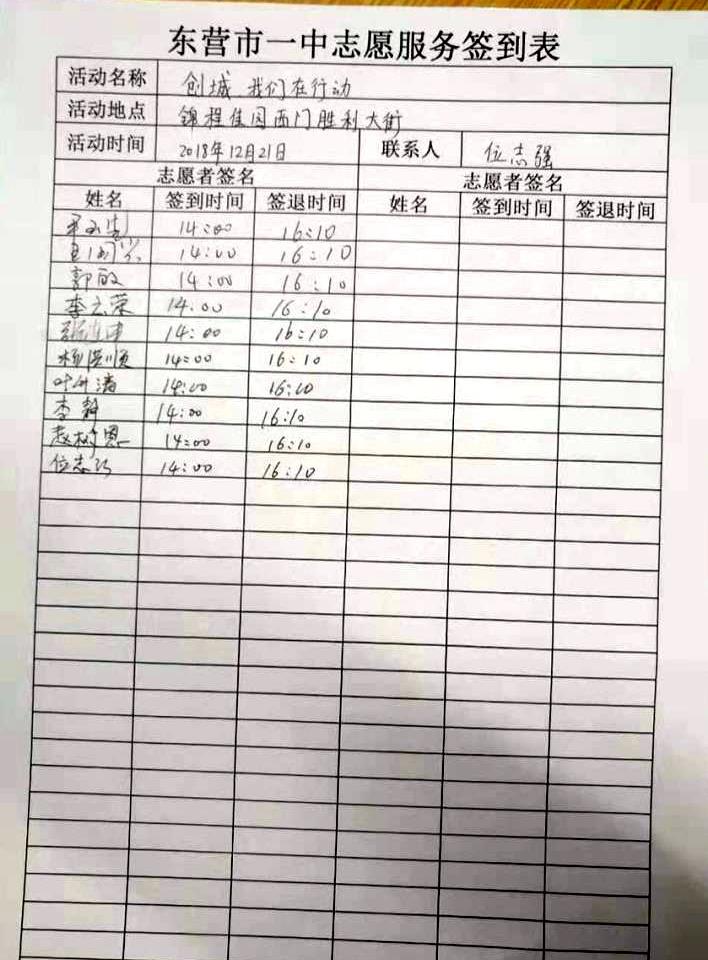 东营市一中志愿服务签到表
活动名称 创城 我们在行动
活动地点 锦程佳园西门胜利大街
活动时间 2018年12月21日 联系人 位志强
志愿者签名 志愿者签名
姓名 签到时间 签退时间 姓名 签到时间 签退时间
14:00 16:10
14:00 16:10
郭敏 14:00 16:10
李云荣 14:00 16:10
14:00 16:10
杨洪顺 14:00 16:10
14:00 16:10
李静 14:00 16:10
赵树恩 14:00 16:10
位志强 14:00 16:10